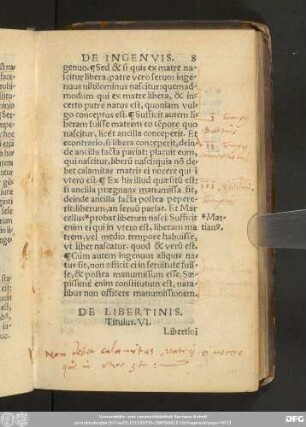 DE INGENVIS. 8
genuo. ¶ Sed & si quis ex matre na-
scitur libera, patre vero seruo: ingen
uus nihilominus nascitur: quemad-
modum qui ex matre libera, & in-
certo patre natus est, quoniam vul-
go conceptus est. ¶ Sufficit autem li-
beram fuisse matrem eo tēpore quo
nascitur, licèt ancilla conceperit. Et
econtrario si libera conceperit, dein-
de ancilla facta pariat: placuit eum,
qui nascitur, liberū nasci: quia nō de-
bet calamitas matris ei nocere qui ī
vtero est. ¶ Ex his illud quæsitū est:
si ancilla prægnans manumissa sit,
deinde ancilla facta postea pepere-
rit: liberum, an seruū pariat. Et Mar-
cellus probat liberum nasci: Sufficit
enim ei qui in vtero est, liberam ma
trem, vel medio tempore habuisse,
vt liber nascatur. quod & verū est.
¶ Cùm autem ingenuus aliquis na-
tus sit, non officit ei in seruitute fuis-
se, & postea manumissum esse. Sæ-
pissimè enim constitutum est, nata-
libus non officere manumissionem.
*Mar-
tianus
DE LIBERTINIS.
Titulus. VI.
Libertini
Non debet calamitas matris ei nocere
qui in utero est